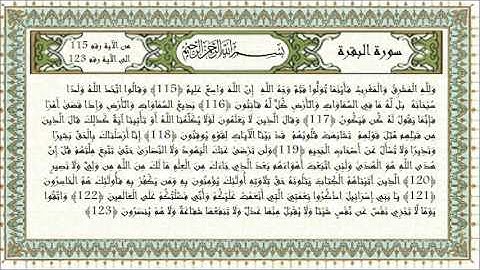 سورة البقرة
بسم الله الرحمن الرحيم
من الآية رقم 115
الى الآية رقم 123
ولله المشرق والمغرب فأينما تولوا فثم وجه الله إن الله واسع عليم {115} وقالوا اتخذ الله ولدا
سبحانه بل له ما في السماوات والأرض كل له قانتون {116} بديع السماوات والأرض وإذا قضى أمرا
فإنما يقول له كن فيكون {117} وقال الذين لا يعلمون لولا يكلمنا الله أو تأتينا آية كذلك قال الذين
من قبلهم مثل قولهم تشابهت قلوبهم قد بينا الآيات لقوم يوقنون {118} إنا أرسلناك بالحق بشيرا
ونذيرا ولا تسأل عن أصحاب الجحيم {119} ولن ترضى عنك اليهود ولا النصارى حتى تتبع ملتهم قل إن
هدى الله هو الهدى ولئن اتبعت أهواءهم بعد الذي جاءك من العلم ما لك من الله من ولي ولا نصير
{120} الذين آتيناهم الكتاب يتلونه حق تلاوته أولئك يؤمنون به ومن يكفر به فأولئك هم الخاسرون
{121} يا بني إسرائيل اذكروا نعمتي التي أنعمت عليكم وأني فضلتكم على العالمين {122} واتقوا
يوما لا تجزي نفس عن نفس شيئا ولا يقبل منها عدل ولا تنفعها شفاعة ولا هم ينصرون {123}